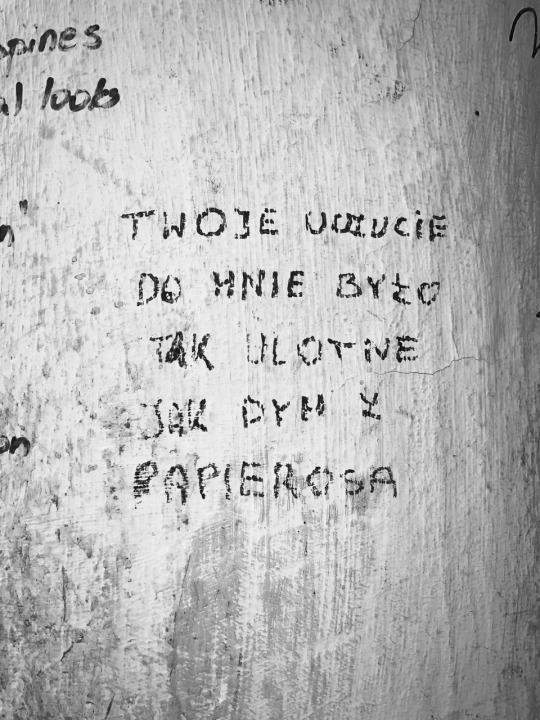 al looks
TWOJE UCZUCIE
DO MNIE BYŁO
TAK ULOTNE
JAK DYM Z
PAPIEROSA